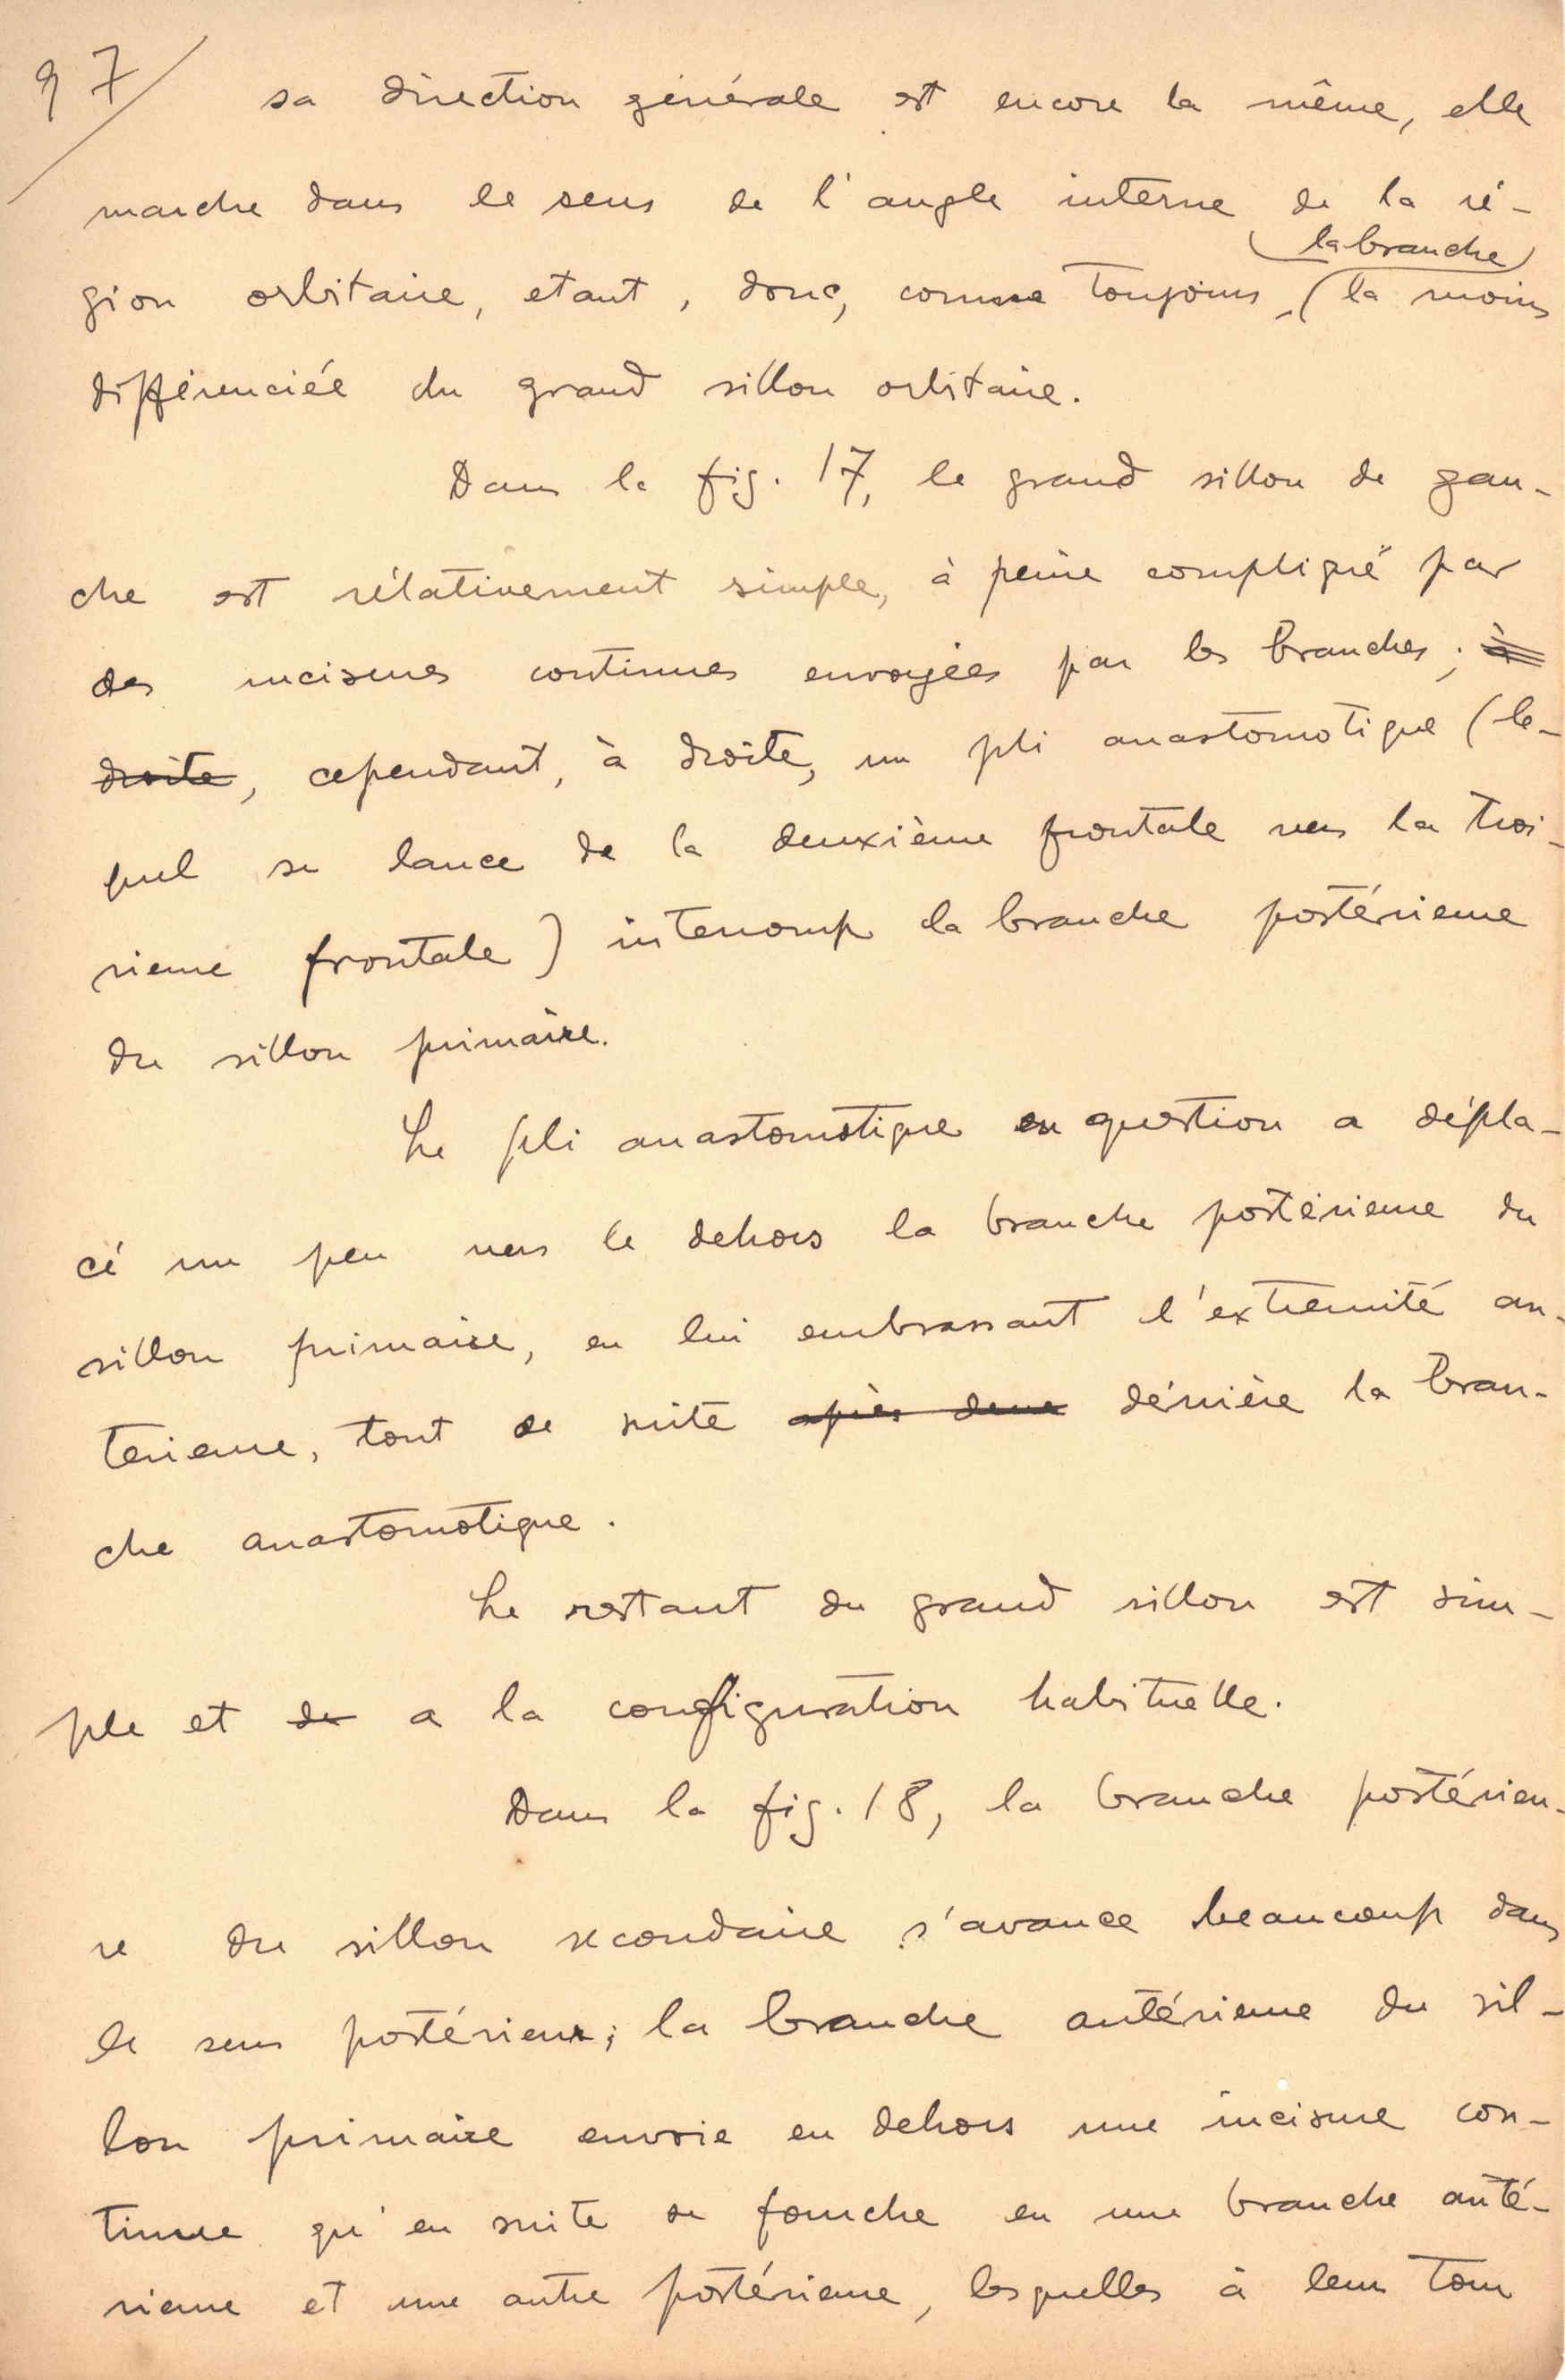 97/
sa direction générale est encore la même, elle
marche dans le sens de l'angle interne de la ré-
la branche
gion orbitaire, etant, donc, comme toujours, (la moins
différenciée du grand sillon orbitaire.
Dans la fig. 17, le grand sillon de gau-
che est rélativement simple, à peine compliqué par
des incisures continues envoyées par les branches; à
droite, cependant, à droite, un pli anastomotique (le-
quel se lance de la deuxième frontale vers la troi-
sieme frontale) interromp la branche postérieure
du sillon primaire.
Le pli anastomotique en question a dépla-
cé un peu vers le dehors la branche postérieure du
sillon primaire, en lui embrassant l'extremité an-
terieure, tout de suite après deux dérrière la bran-
che anastomotique.
Le restant du grand sillon est sim-
ple et de a la configuration habituelle.
Dans la fig. 18, la branche postérieu-
re du sillon secondaire s'avance beaucoup dans
le sens postérieur; la branche antérieure du sil-
lon primaire envoie en dehors une incisure con-
tinue qu'en suite se fourche en une branche anté-
rieure et une autre postérieure, lesquelles à leur tour